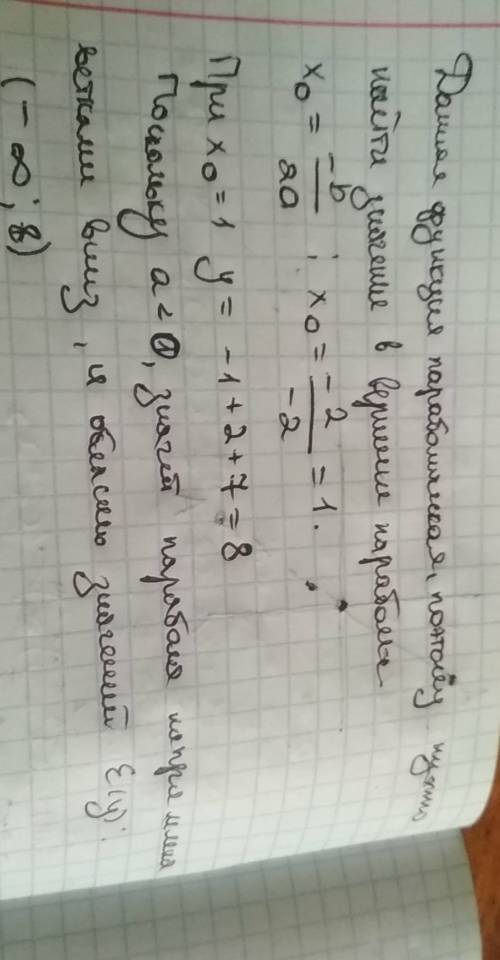 Данная функция параболическая, поэтому нужно
найти значение в вершине параболы
x₀ = -b/2a ; x₀ = -2/-2 = 1.
При x₀ = 1 y = -1+2+7=8
Поскольку a < 0, значит парабола направлена
ветками вниз, и областью значений E(y):
(-∞; 8)